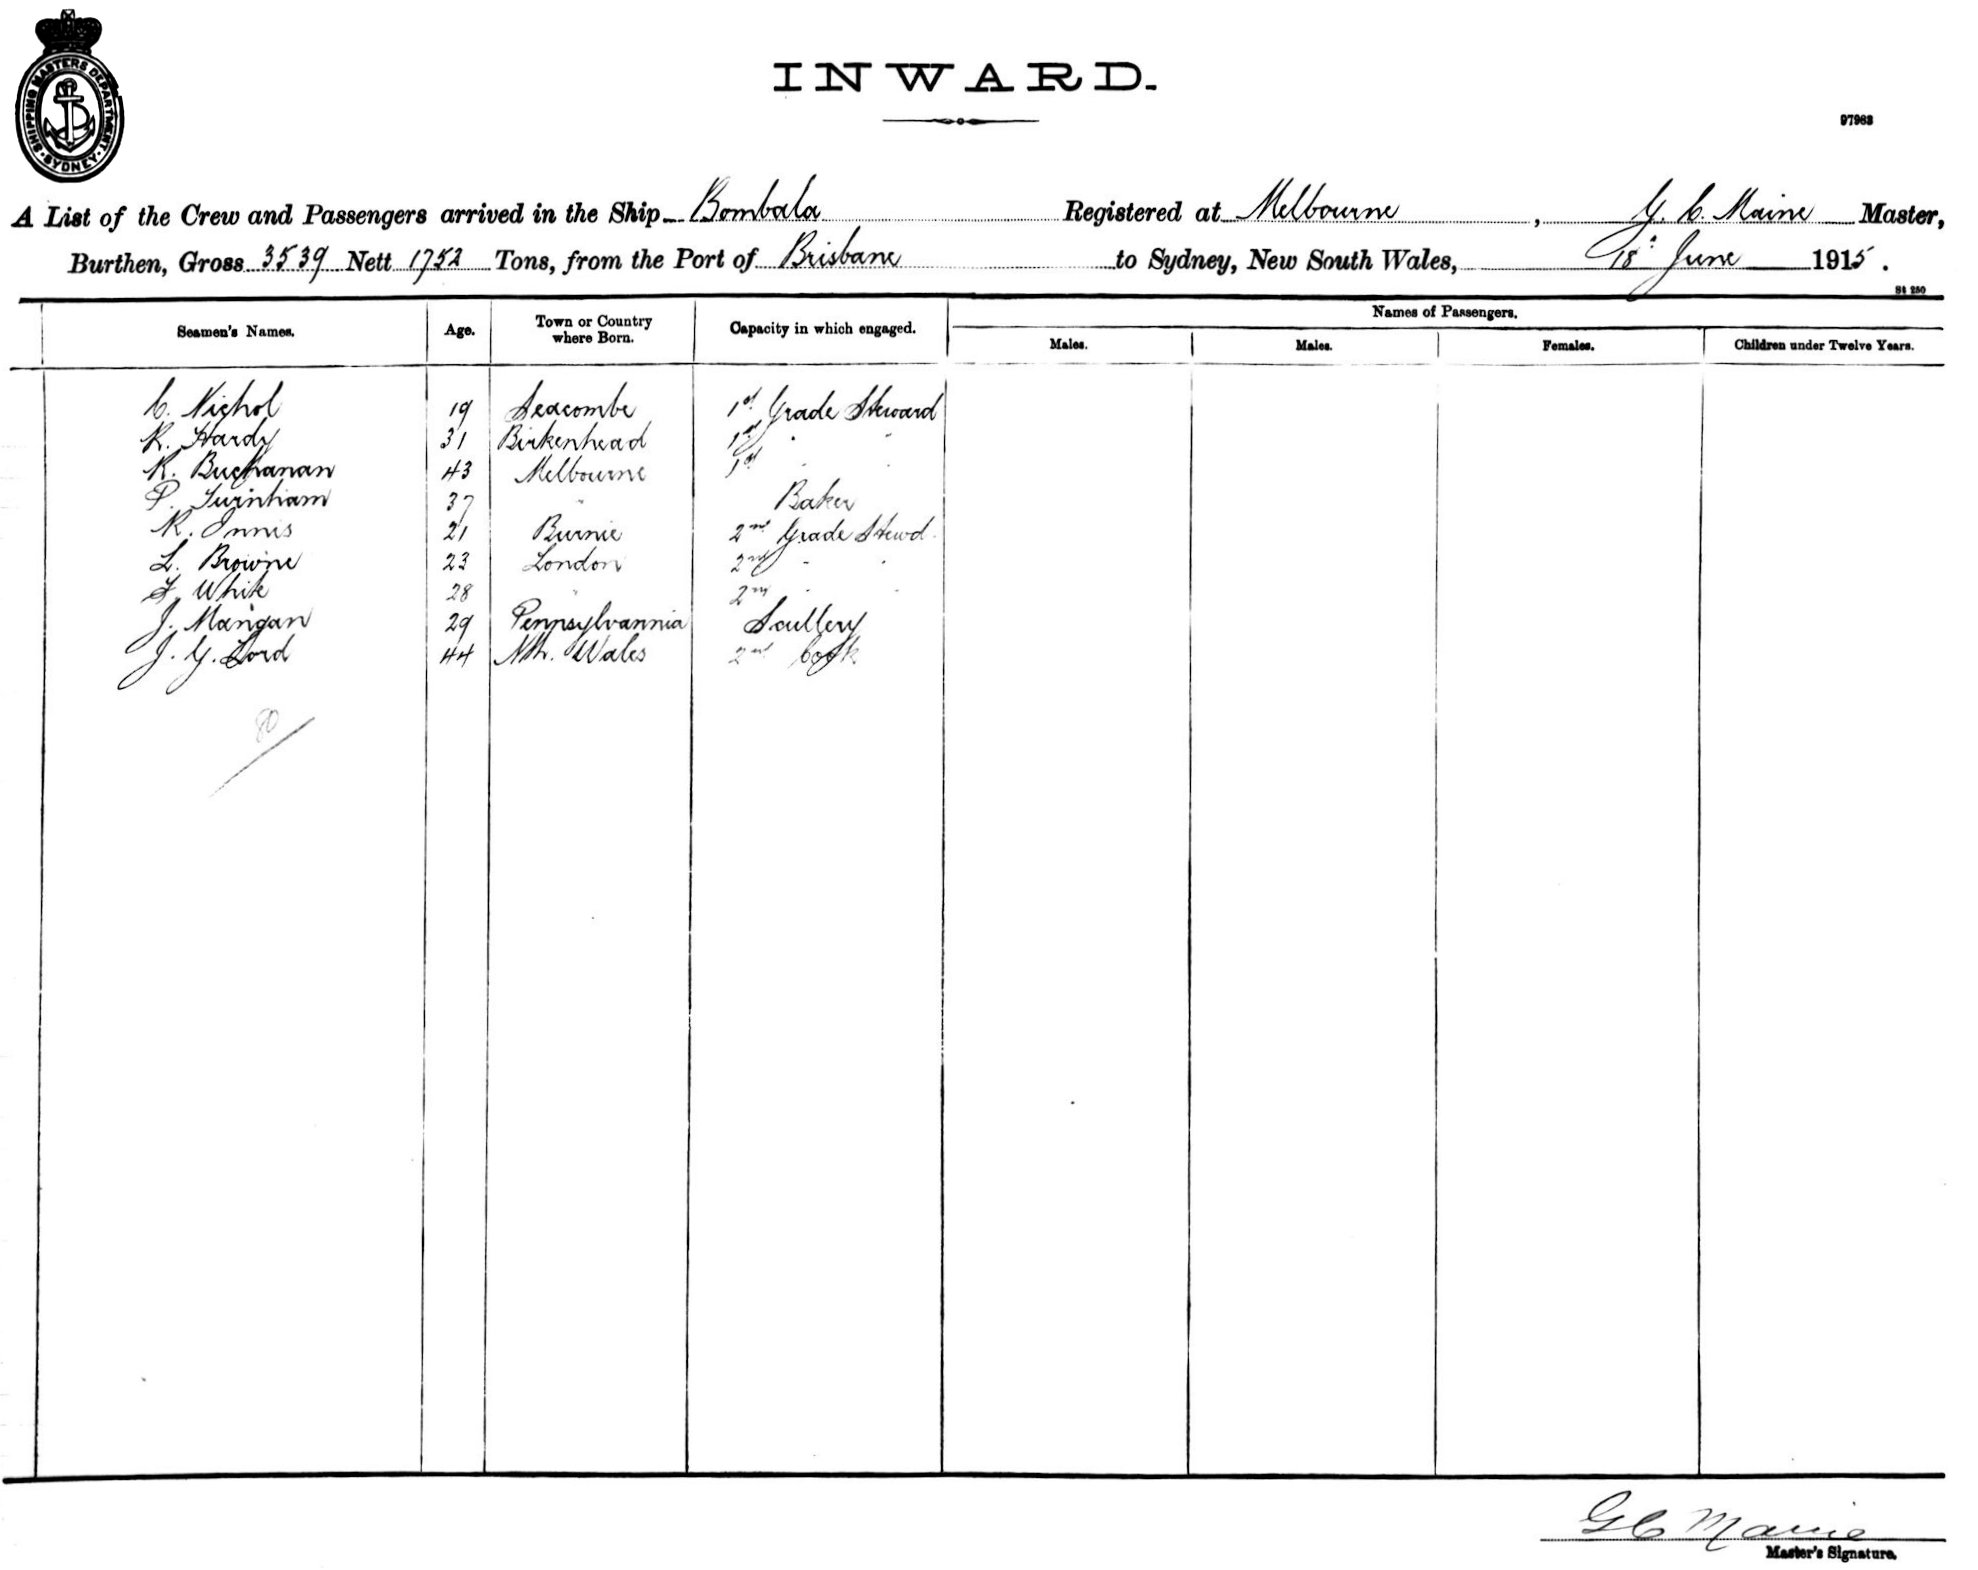 SHIPPING MASTERS DEPARTMENT · SYDNEY ·
INWARD.
97963
A List of the Crew and Passengers arrived in the Ship Bombala Registered at Melbourne, G. C. Maine Master,
Burthen, Gross 3539 Nett 1752 Tons, from the Port of Brisbane to Sydney, New South Wales, 18: June 1915.
St 250
Seamen's Names. Age. Town or Country where Born. Capacity in which engaged. Names of Passengers.
Males. Males. Females. Children under Twelve Years.
C. Nichol 19 Seacombe 1st Grade Steward
R. Hardy 31 Birkenhead 1st " "
R. Buchanan 43 Melbourne 1st " "
P. Turnham 37 " Baker
R. Innis 21 Burnie 2nd Grade Stewd.
L. Browne 23 London 2nd " "
F. White 28 " 2nd " "
J. Mangan 29 Pennsylvannia Scullery
J. G. Lord 44 Nth. Wales 2nd Cook
80
G C Maine
Master's Signature.